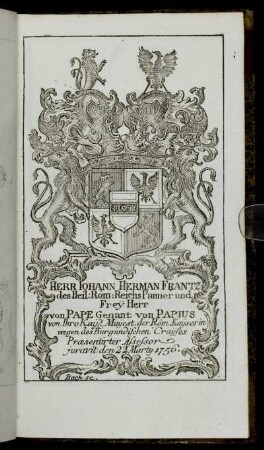 HERR IOHANN HERMAN FRANTZ
des Heil: Röm: Reichs Panner und
Frey Herr
von PAPE Genant von PAPIUS
von Ihro Kaÿs. Majest. der Röm. Kayserin
wegen des Burgundischen Crayses
Præsentirter Assessor
juravit den 22 Marty 1756.
Bach sc.